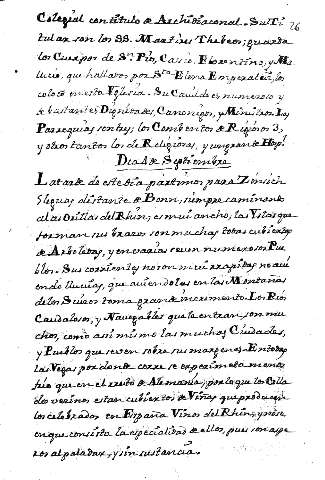 Colegial con titulo de Archidiaconal. Su Ti
26
tular son los SS. Martires Thebeos; guarda
los Cuerpos de Sn. Pio, Casio, Florentino, y Ma
lucio, que hallaron por Sta. Elena Emperatriz, los
colocó en esta Yglesia. Su Cavildo es numeroso y
de bastantes Dignidades, Canonigos, y Ministros. Las
Parroquias son tres; los Conbentos de Religiosos 3,
y otros tantos los de Religiosas, y un grande Hospl.
Dia 4 de Septiembre
La tarde de este dia partimos para Zinsich
5 leguas distante de Bonn, siempre caminando
a las Orillas del Rhin; es mui ancho, las Yslas que
forman sus brazos son muchas todas cubiertas
de Arboledas, y en varias se ven numerosos Pue
blos. Sus corrientes no son mui rapidas no aci
endo lluvias, que aviendolas en las Montañas
de los Suizos toma grande incremento. Los Rios
Caudalosos, y Navegables que la entran son mu
chos, como asi mismo las muchas Ciudades,
y Pueblos que se ven sobre sus margenes. En todas
las Vegas por donde corre se experimenta menos
frio que en el resto de Alemania; por lo que los Colla
dos vecinos estan cubiertos de Viñas que producen
los celebrados en España Vinos del Rhin, y no se
en que consista la especialidad de ellos, pues son aspe
ros al paladar, y sin sustancia.